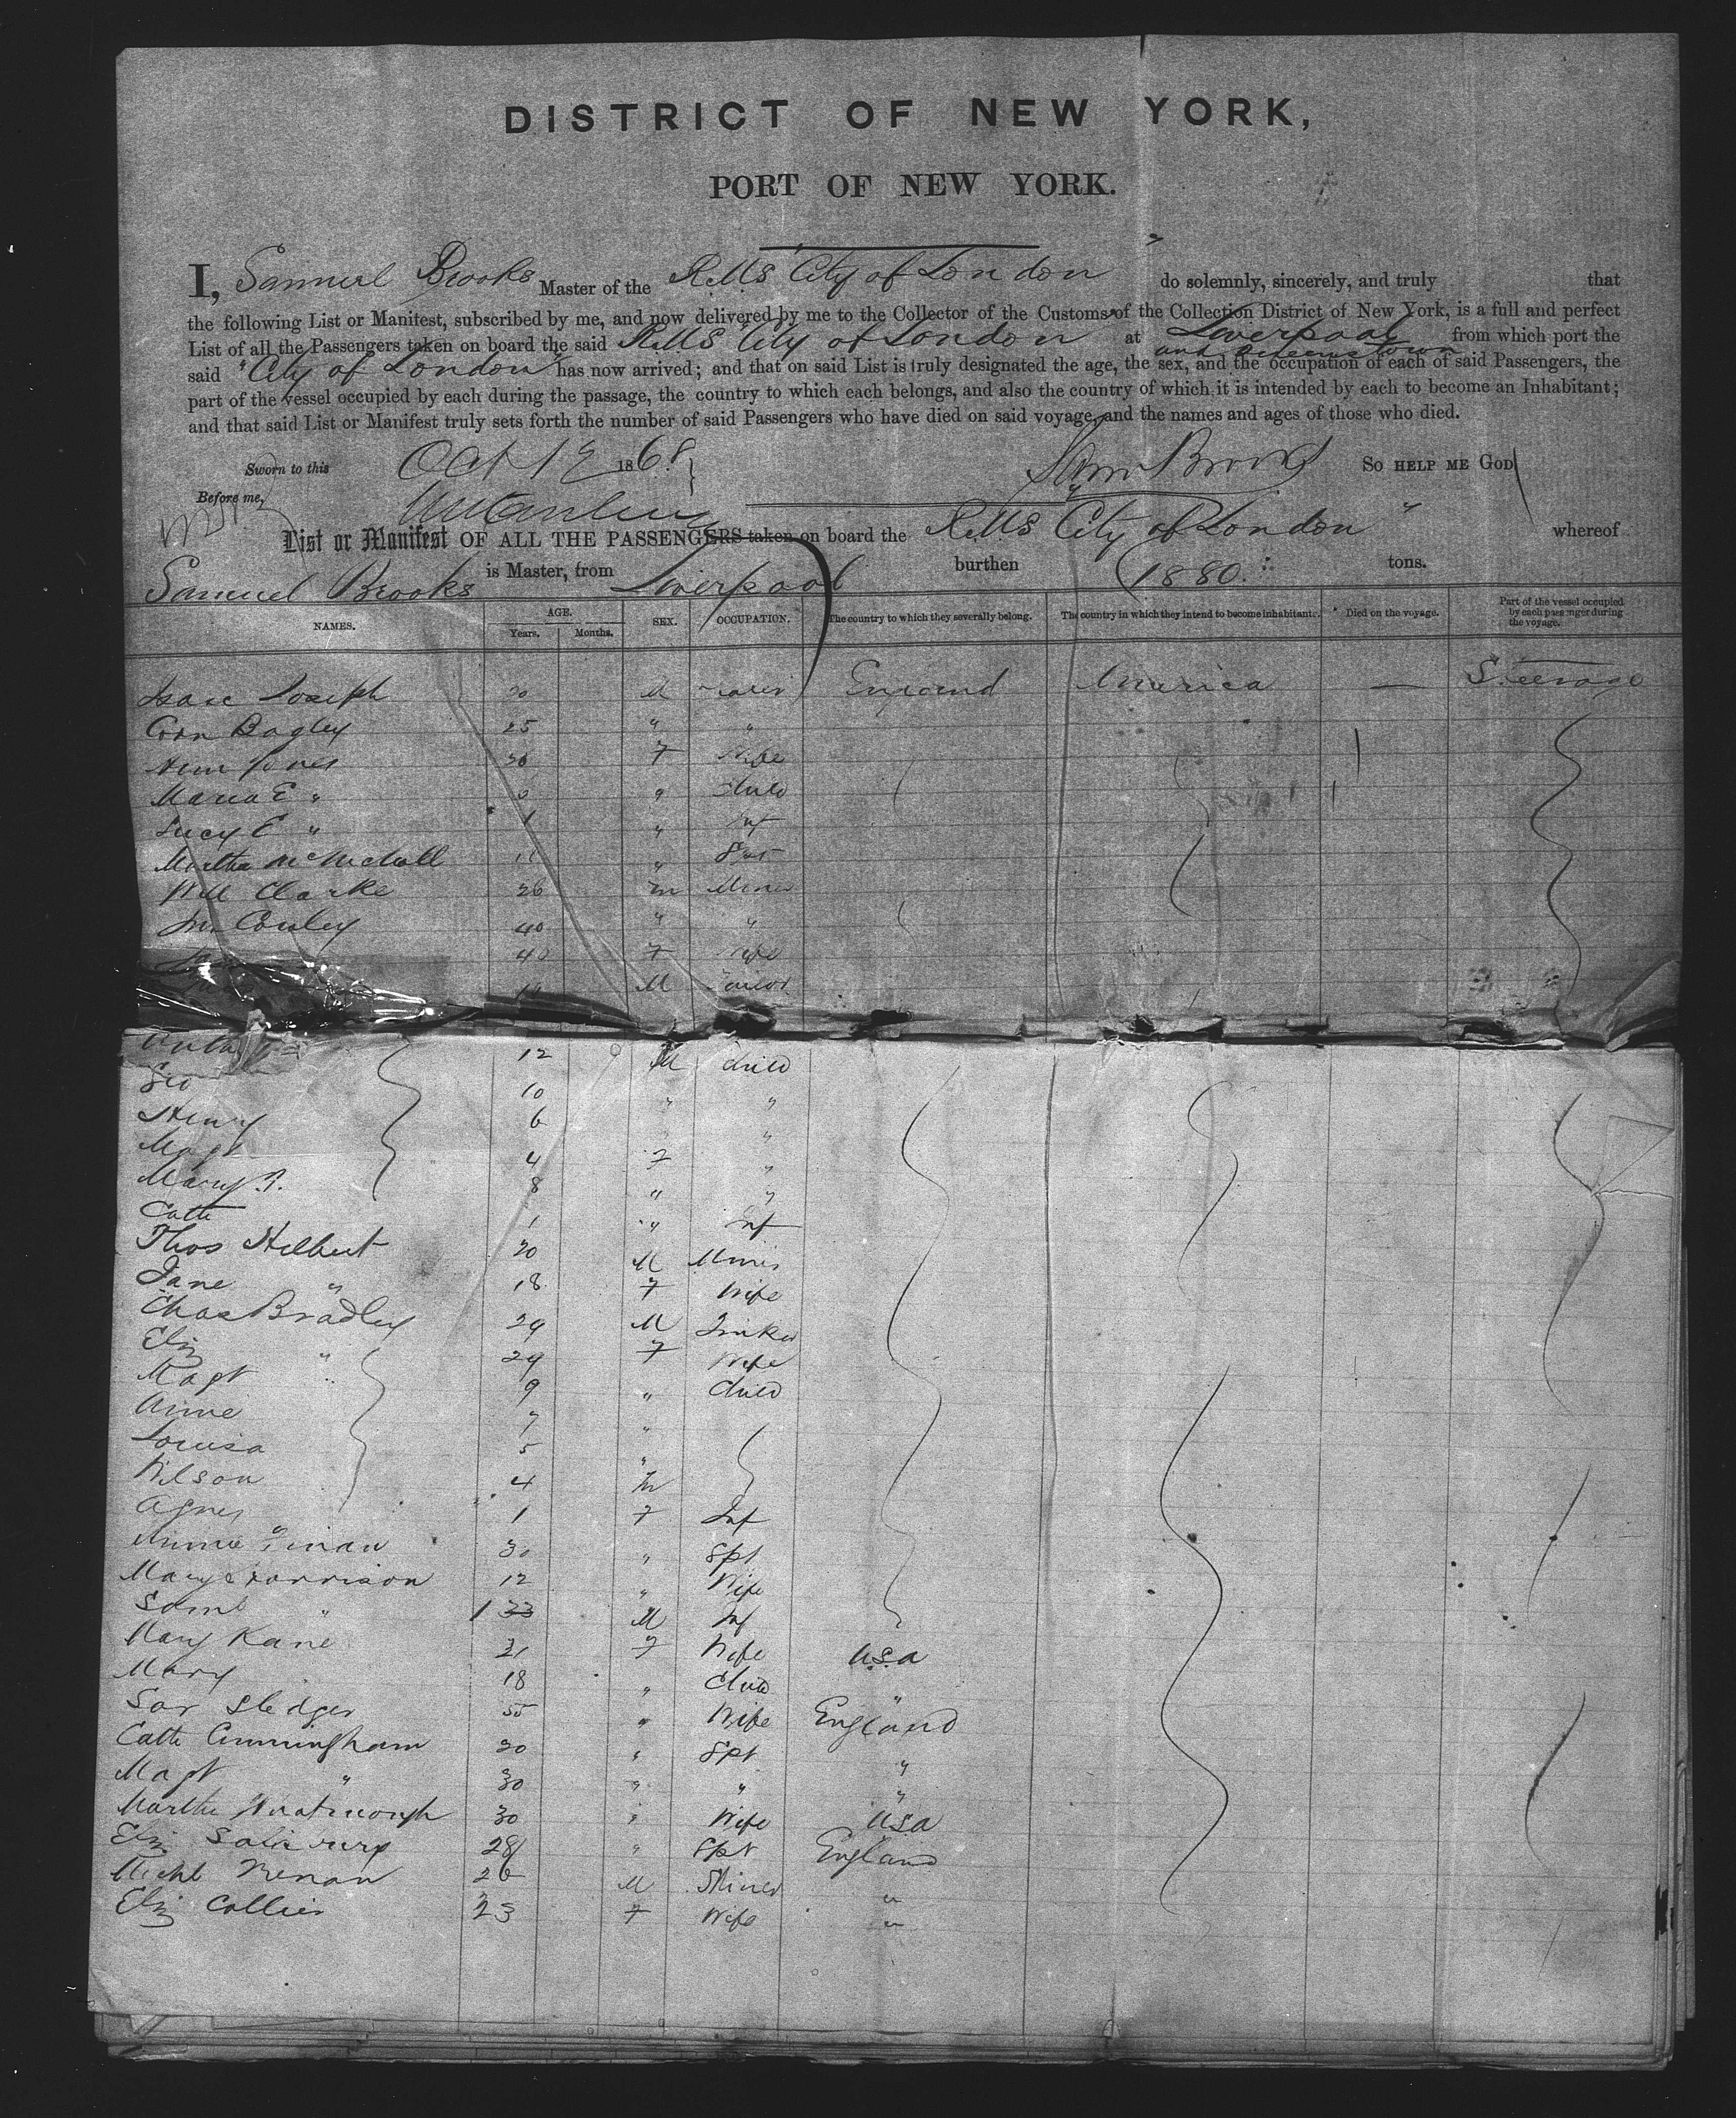 DISTRICT OF NEW YORK,
PORT OF NEW YORK.
I, Samuel Brooks Master of the RMS "City of London" do solemnly, sincerely, and truly that
the following List or Manifest, subscribed by me, and now delivered by me to the Collector of the Customs of the Collection District of New York, is a full and perfect
List of all the Passengers taken on board the said RMS City of London at Liverpool and Queenstown from which port the
said "City of London" has now arrived; and that on said List is truly designated the age, the sex, and the occupation of each of said Passengers, the
part of the vessel occupied by each during the passage, the country to which each belongs, and also the country of which it is intended by each to become an Inhabitant;
and that said List or Manifest truly sets forth the number of said Passengers who have died on said voyage, and the names and ages of those who died.
Sworn to this Oct 12 1868 Saml Brooks SO HELP ME GOD
Before me,
List or Manifest OF ALL THE PASSENGERS taken on board the RMS "City of London" whereof
Samuel Brooks is Master, from Liverpool burthen 1880 tons.
NAMES. AGE. Years. Months. SEX. OCCUPATION. The country to which they severally belong. The country in which they intend to become inhabitants. Died on the voyage. Part of the vessel occupied by each passenger during the voyage.
Isaac Joseph M England America — Steerage
Bagley 25 " "
Ann Jones F Wife
Maria E " " Child
Lucy E " 1 " Inf
Martha " Spt
Will Clarke 26 m Miner
Conley 40 " "
40 F Wife
M
12 M Child
Geo 10 " "
Henry 6 " "
Magt 4 F "
Mary 8 " "
Cath 1 " Inf
Thos Hilbert 20 M Miner
Jane " 18 F Wife
Chas Bradley 29 M
Eliz " 29 F Wife
Magt 9 " Child
Anne 7 "
Louisa 5 "
Wilson 4 m
Agnes 1 F Inf
30 " Spt
Mary Harrison 12 " Wife
Saml " 1 33 M Inf
Mary Kane 21 F Wife USA
Mary 18 " Child "
Sar Sledger 55 " Wife England
Cath Cunningham 20 " Spt "
Magt " 30 " " "
Martha 30 " Wife USA
Eliz 28 " Spt England
Michl 26 M Miner "
Eliz Collier 23 F Wife "